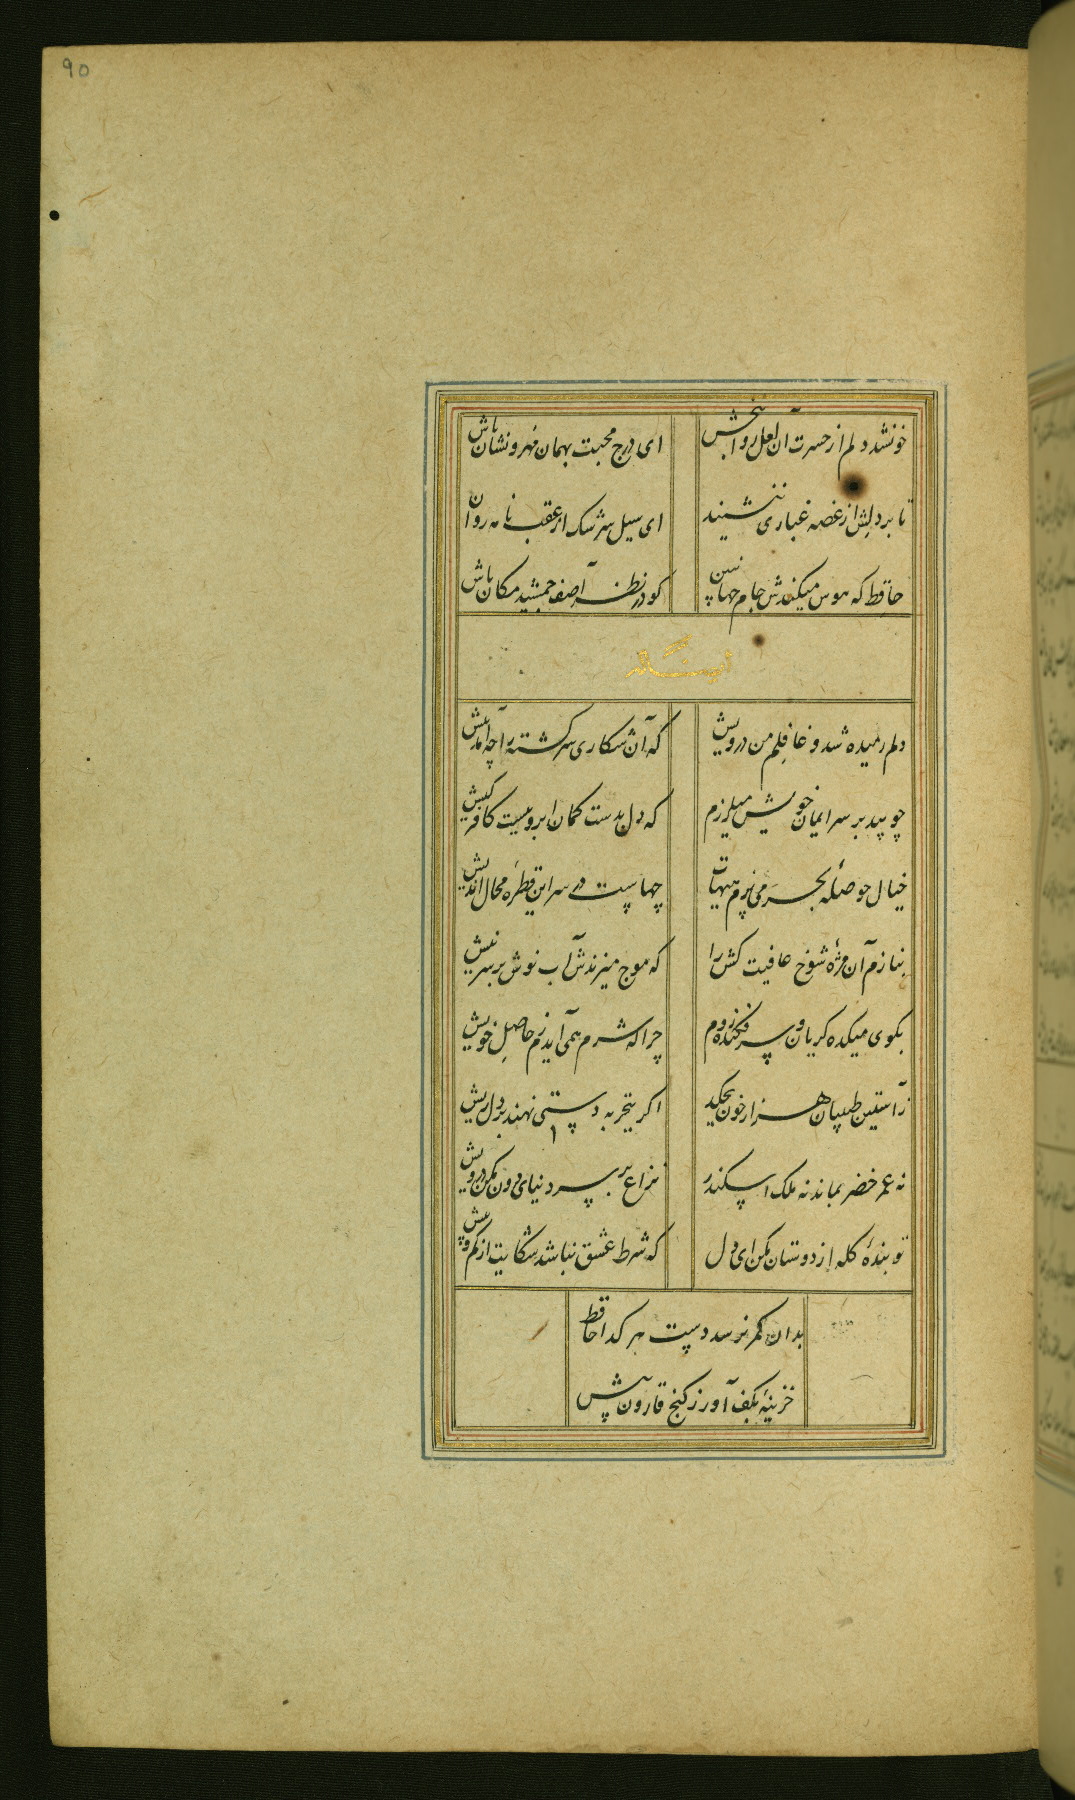 90
خونشد دلم از حسرت آن لعل روانبخش
ای درج محبت بهمان مهر و نشان باش
تا بر دلش از غصه غباری ننشیند
ای سیل سرشک از عقب نامه روان
حافظ که هوس میکندش جام جهان بین
کو در نظر آصف جمشید مکان باش
دلم رمیده شد و غافلم من درویش
که آن شکاری سرکشته را چه آمد پیش
چو بید بر سر ایمان خویش میلرزم
که دل بدست کمان ابرویست کافر کیش
خیال حوصلهٔ بحر می پزم هیهات
چهاست در سر این قطرهٔ محال اندیش
بنازم آن مژهٔ شوخ عافیت کش را
که موج میزندش آب نوش بر سر نیش
بکوی میکده کریان و سرفکنده روم
چرا که شرم همی آیدم ز حاصل خویش
ز آستین طبیبان هزار خون بچکد
اکر بتجربه دستی نهند بر دل ریش
نه عمر خضر بماند نه ملک اسکندر
نزاع بر سر دنیای دون مکن درویش
تو بندهٔ کله از دوستان مکن ای دل
که شرط عشق نباشد شکایت از کم و بیش
بدان کمر نرسد دست هر کدا حافظ
خزینهٔ بکف آور ز کنج قارون بیش